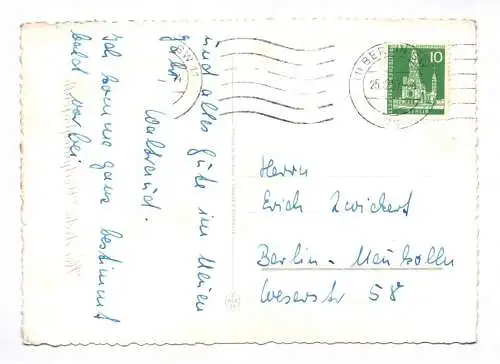 und alles Gute im Neuen
Jahr,
Waltraud.
Ich komme ganz bestimmt
bald vorbei
Herrn
Erich Zwickert
Berlin - Neukölln
Weserstr 58
BERLIN
25
10